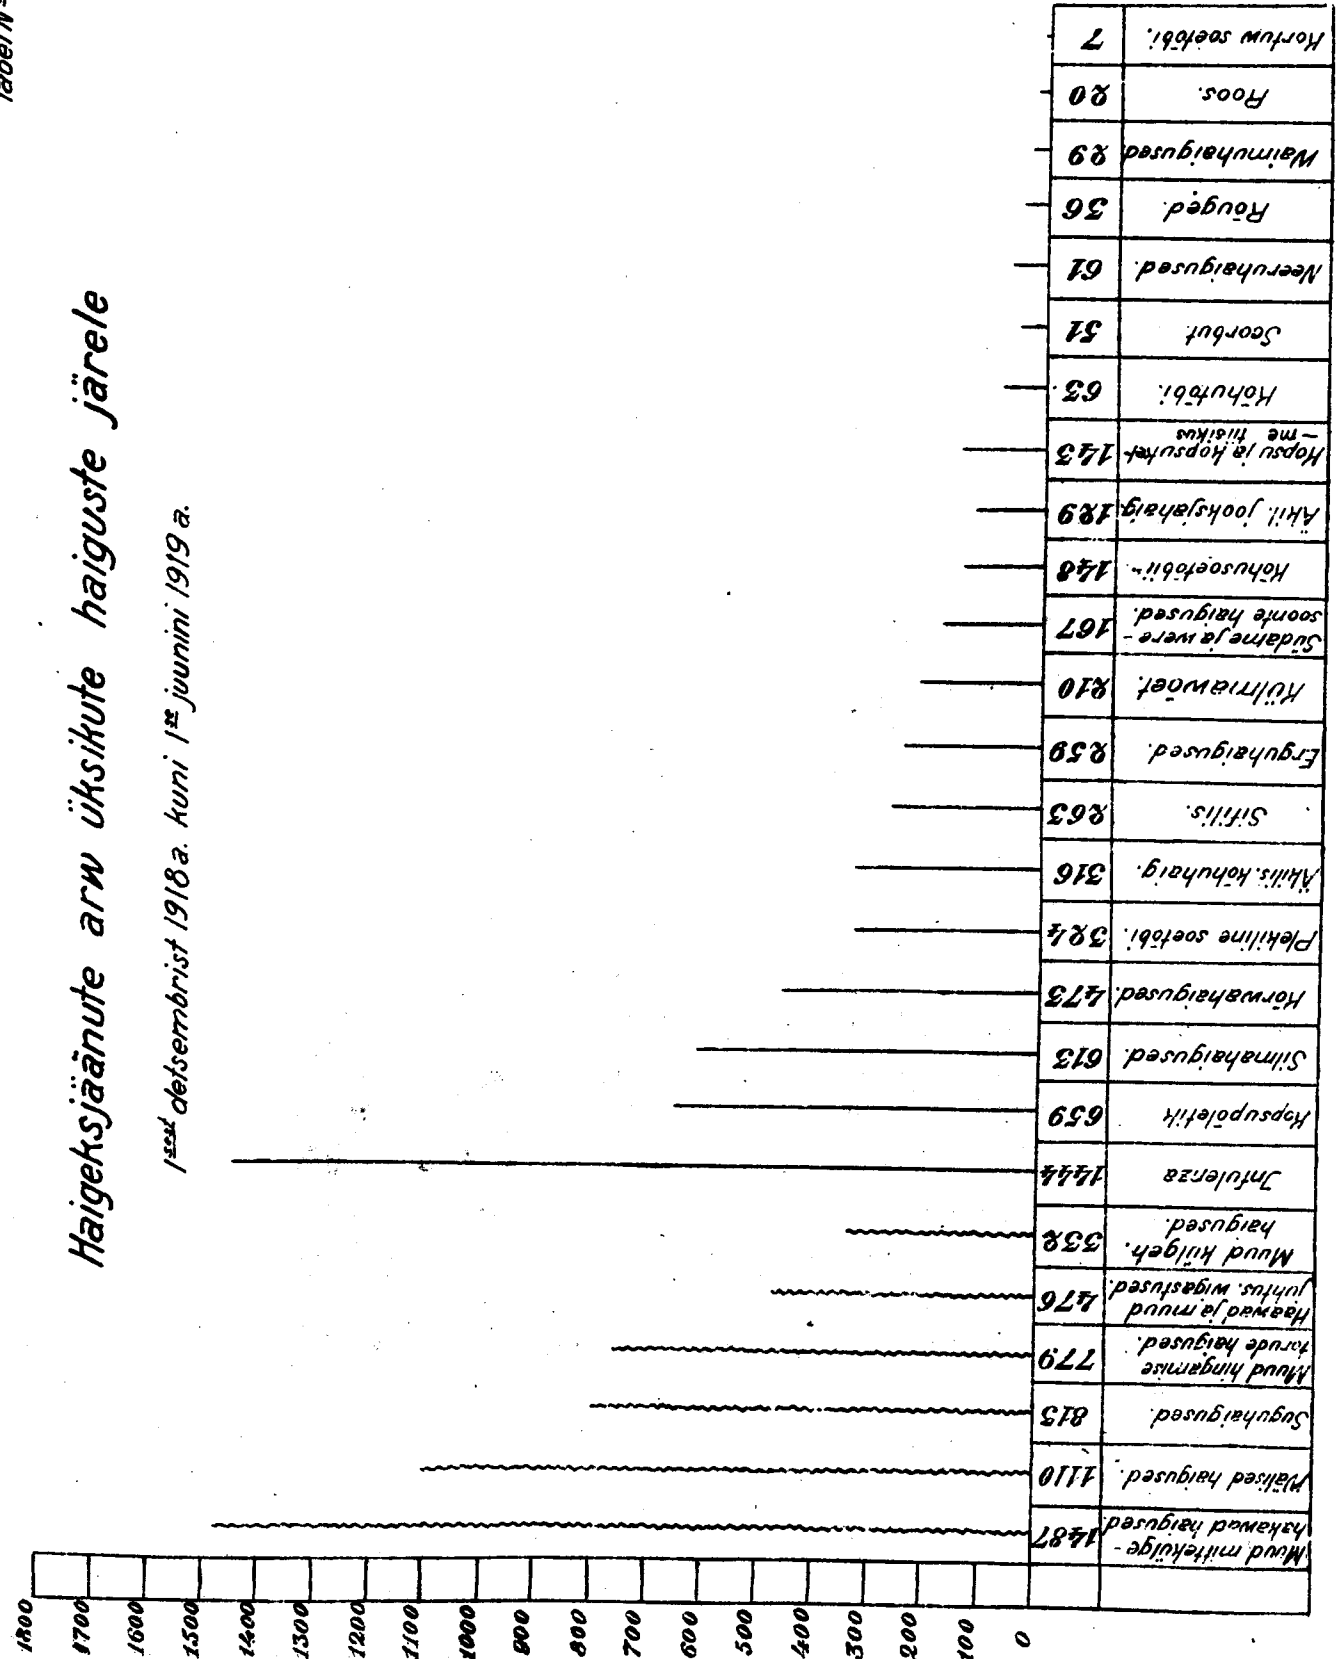 Tabel №
Haigeksjäänute arw üksikute haiguste järele
1sest detsembrist 1918 a. kuni 1se juunini 1919 a.
1800
1700
1600
1500
1400
1300
1200
1100
1000
900
800
700
600
500
400
300
200
100
0
1487
Muud mittekülge-
hakawad haigused.
1110
Wälised haigused.
815
Suguhaigused.
779
Muud hingamise
torude haigused.
476
Haawad ja muud
juhtus. wigastused.
332
Muud külgeh.
haigused.
1444
Infulenza
659
Kopsupõletik
613
Silmahaigused.
473
Kõrwahaigused.
324
Plekiline soetõbi.
316
Äkilis. kõhuhaig.
263
Sifilis.
259
Erguhaigused.
210
Külmawõet.
167
Südame ja were-
soonte haigused.
148
Kõhusoetõbi
129
Äkil. jooksjahaig.
143
Kopsu ja kopsukel-
-me tiisikus
63
Kõhutõbi.
51
Scorbut
61
Neeruhaigused.
36
Rõuged.
29
Waimuhaigused
20
Roos.
7
Kortuw soetõbi.